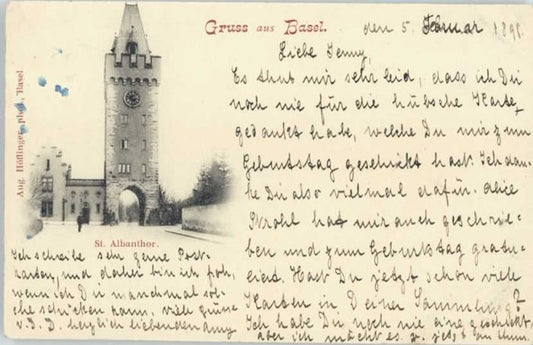 Gruss aus Basel.
den 5. Februar 1898.
Liebe Jenny,
Es thut mir sehr leid, dass ich Dir
noch nie für die hübsche Karte
gedankt habe, welche Du mir zum
Geburtstag geschickt hast. Ich dan-
ke Dir also vielmal dafür. Alice
Strohl hat mir auch geschrie-
ben und zum Geburtstag gratu-
liert. Hast Du jetzt schon viele
Karten in Deiner Sammlung?
Ich habe Dir noch nie eine geschickt,
aber ich möcht es
Aug. Höflinger, phot., Basel
St. Albanthor.
Ich schreibe sehr gerne Post-
karten, und daher bin ich froh,
wenn ich Dir manchmal sol-
che schicken kann, viele Grüsse
v. D. D. herzlich liebenden Amy